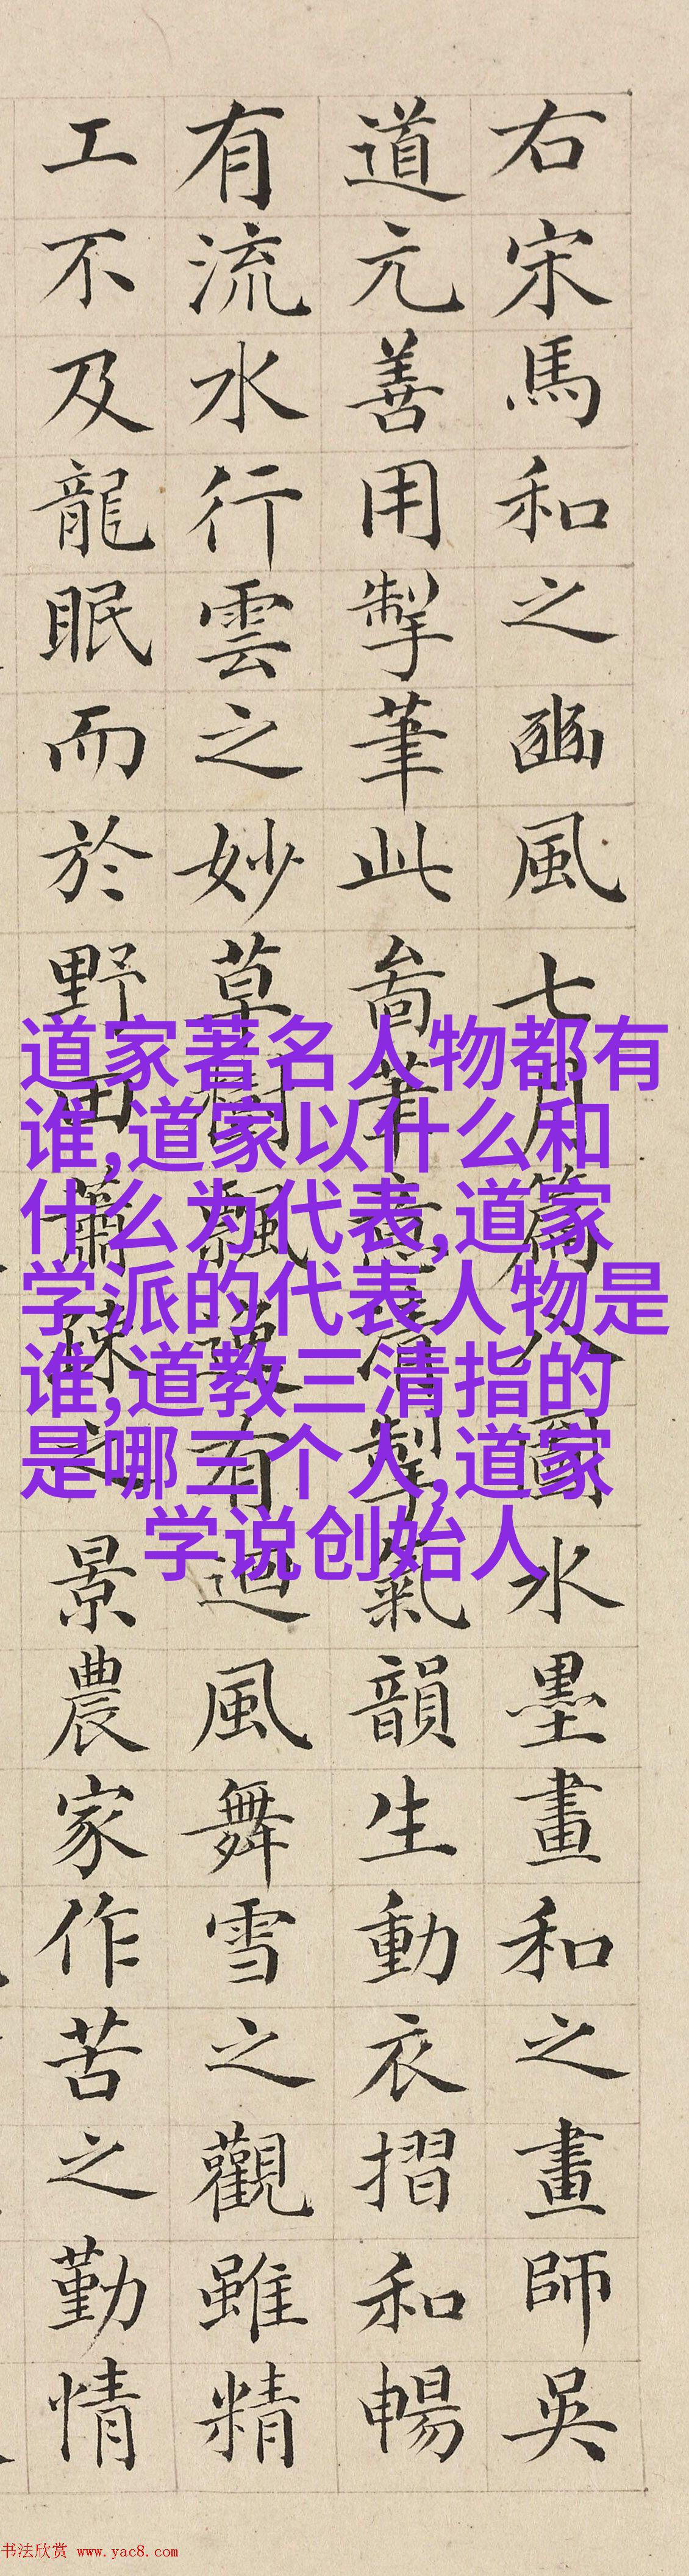 右宋馬和之豳風七月篇圖水墨畫和之畫師吳
道元善用掣筆此啚筆意掣氣韻生動衣摺和暢
有流水行雲之妙草樹飄有迴風舞雪之觀雖精
工不及龍眠而於野田蕭疎之景農家作苦之勤情
道家著名人物都有
谁,道家以什么和
什么为代表,道家
学派的代表人物是
谁,道教三清指的
是哪三个人,道家
学说创始人
书法欣赏 www.yac8.com